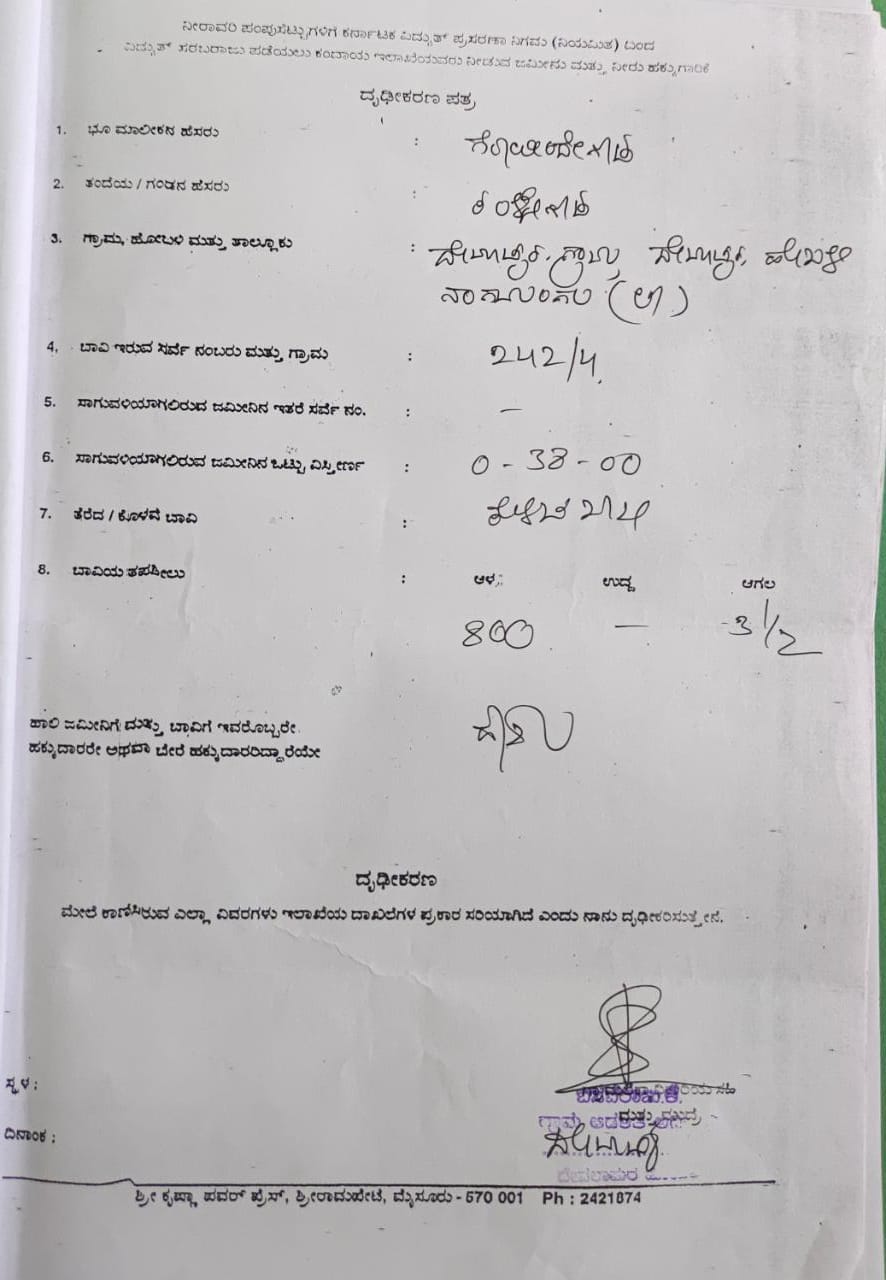 ನೀರಾವರಿ ಪಂಪುಸೆಟ್ಟುಗಳಿಗೆ ಕರ್ನಾಟಕ ವಿದ್ಯುತ್ ಪ್ರಸರಣಾ ನಿಗಮ (ನಿಯಮಿತ) ದಿಂದ
ವಿದ್ಯುತ್ ಸರಬರಾಜು ಪಡೆಯಲು ಕಂದಾಯ ಇಲಾಖೆಯವರು ನೀಡುವ ಜಮೀನು ಮತ್ತು ನೀರು ಹಕ್ಕುಗಾರಿಕೆ
ದೃಢೀಕರಣ ಪತ್ರ
1. ಭೂ ಮಾಲೀಕನ ಹೆಸರು : ಗೋವಿಂದೇಗೌಡ
2. ತಂದೆಯ / ಗಂಡನ ಹೆಸರು :
3. ಗ್ರಾಮ, ಹೋಬಳಿ ಮತ್ತು ತಾಲ್ಲೂಕು : ದೇವಲಾಪುರ ಗ್ರಾಮ, ದೇವಲಾಪುರ ಹೋಬಳಿ
ನಾಗಮಂಗಲ (ತಾ)
4, ಬಾವಿ ಇರುವ ಸರ್ವೆ ನಂಬರು ಮತ್ತು ಗ್ರಾಮ : 242/4
5. ಸಾಗುವಳಿಯಾಗಲಿರುವ ಜಮೀನಿನ ಇತರೆ ಸರ್ವೆ ನಂ. : –
6. ಸಾಗುವಳಿಯಾಗಲಿರುವ ಜಮೀನಿನ ಒಟ್ಟು ವಿಸ್ತೀರ್ಣ : 0-38-00
7. ತೆರೆದ / ಕೊಳವೆ ಬಾವಿ : ಕೊಳವೆ ಬಾವಿ
8. ಬಾವಿಯ ತಪಸೀಲು : ಆಳ ಉದ್ದ ಅಗಲ
800 – 3 1/2
ಹಾಲಿ ಜಮೀನಿಗೆ ಮತ್ತು ಬಾವಿಗೆ ಇವರೊಬ್ಬರೇ
ಹಕ್ಕುದಾರರೇ ಅಥವಾ ಬೇರೆ ಹಕ್ಕುದಾರರಿದ್ದಾರೆಯೇ
ದೃಢೀಕರಣ
ಮೇಲೆ ಕಾಣಿಸಿರುವ ಎಲ್ಲಾ ವಿವರಗಳು ಇಲಾಖೆಯ ದಾಖಲೆಗಳ ಪ್ರಕಾರ ಸರಿಯಾಗಿದೆ ಎಂದು ನಾನು ದೃಢೀಕರಿಸುತ್ತೇನೆ.
ಸ್ಥಳ :
ಬಸವರಾಜು.ಕೆ.
ಮತ್ತು ಮುದ್ರೆ
ಗ್ರಾಮ
ದಿನಾಂಕ :
ದೇವಲಾಪುರ
ಶ್ರೀ ಕೃಷ್ಣಾ ಪವರ್ ಪ್ರೆಸ್, ಶ್ರೀರಾಮಪೇಟೆ, ಮೈಸೂರು - 570 001 Ph : 2421874